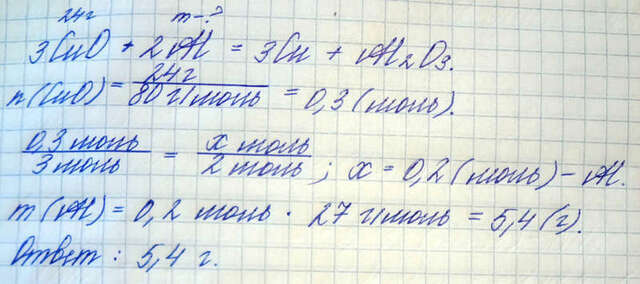 24г m-?
3CuO + 2Al = 3Cu + Al2O3.
n(CuO) = 24г / 80 г/моль = 0,3 (моль).
0,3 моль / 3 моль = x моль / 2 моль ; x = 0,2 (моль) - Al.
m(Al) = 0,2 моль · 27 г/моль = 5,4 (г).
Ответ: 5,4 г.